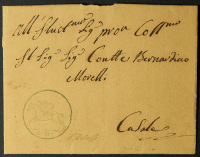 All' Illust.mo Sig.r Sig.r pron Coll.mo
Il Sig.r Sig.r Contte Bernardino
Morelli
Casale